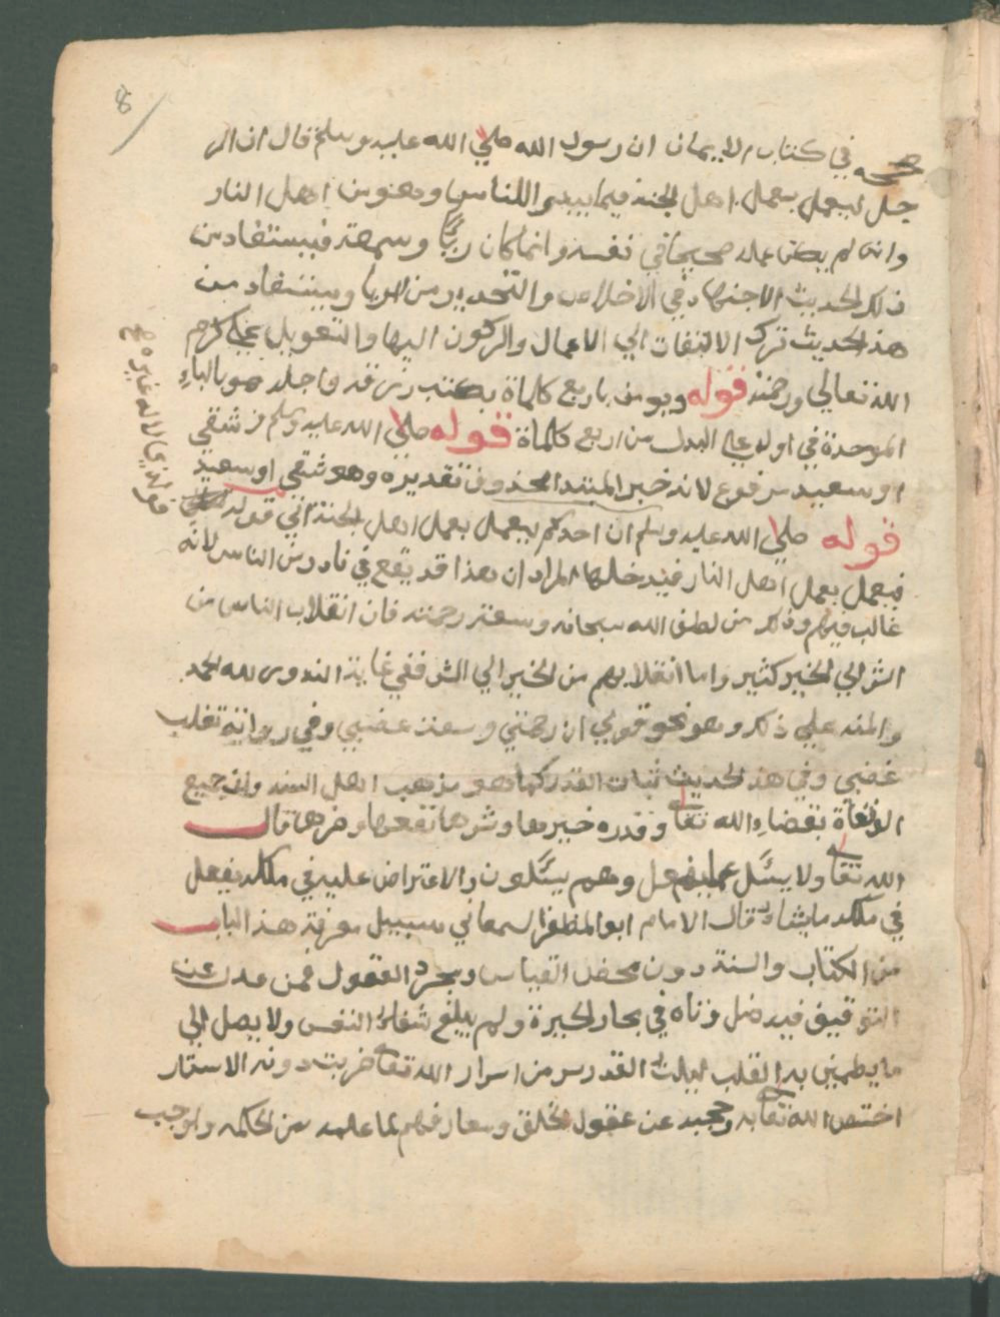 8
صحيحه في كتاب الايمان ان رسول الله صلي الله عليه وسلم قال ان الر
جل ليعمل بعمل اهل الجنه فيما يبدوا للناس وهو من اهل النار
وان لم يصح عمله صحيحا في نفسه وانما كان ريآ وسمعة فيستفاد من
ذلك الحديث الاجتهاد في الاخلاص والتحذير من الريا ويستفاد من
هذ الحديث ترك الالتفات الي الاعمال والركون اليها والتعويل علي كرم
الله تعالي ورحمته قوله ويومن باربع كلماة بكتب رزقه واجله هو بالباء
الموحدة في اوله علي البدل من اربع كلماة قوله صلي الله عليه وسلم شقي
او سعيد مرفوع لانه خبر المبتدا المحذوف تقديره وهو شقي او سعيد
قوله صلي الله عليه وسلم ان احدكم ليعمل بعمل اهل الجنة الي قوله
فيعمل بعمل اهل النار فيدخلها المراد ان هذا قد يقع في نادر من الناس لا انه
غالب فيهم وذلك من لطف الله سبحانه وسعة رحمته فان انقلاب الناس من
الشر الي الخير كثير واما انقلابهم من الخير الي الشر ففي غاية الندور ولله الحمد
والمنه علي ذلك وهو نحو قولي ان رحمتي وسعت غضبي وفي رواية تغلب
غضبي وفي هذ الحديث ثبات القدر كما هو مذهب اهل السنه وان جميع
الواقعاة بقضاء الله تعا وقدره خيرها وشرها نفعها وضرها قال
الله تعا ولا يسئل عما يفعل وهم يسئلون والاعتراض عليه في ملكه يفعل
في ملكه ما يشاء قال الامام ابو المظفر السمعاني سبيل معرفة هذ الباب
من الكتاب والسنة دون محض القياس ومجرد العقول فمن عدل عن
التوقيف فيه ضل وتاه في بحار الحيرة ولم يبلغ شفاء النفس ولا يصل الي
ما يطمين به القلب لان القدر سر من اسرار الله تعا ضربت دونه الاستار
اختص الله تعا به وحجبه عن عقول الخلق ومعارفهم لما علمه من الحكمه واوجب